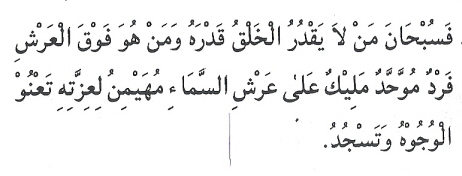 فَسُبْحَانَ مَنْ لاَ يَقْدُرُ الْخَلْقُ قَدْرَهُ وَمَنْ هُوَ فَوْقَ الْعَرْشِ
فَرْدٌ مُوَحَّدٌ مَلِيْكٌ عَلٰى عَرْشِ السَّمَاءِ مُهَيْمِنُ لِعِزَّتِهِ تَعْنُوْ
الْوُجُوْهُ وَتَسْجُدُ.